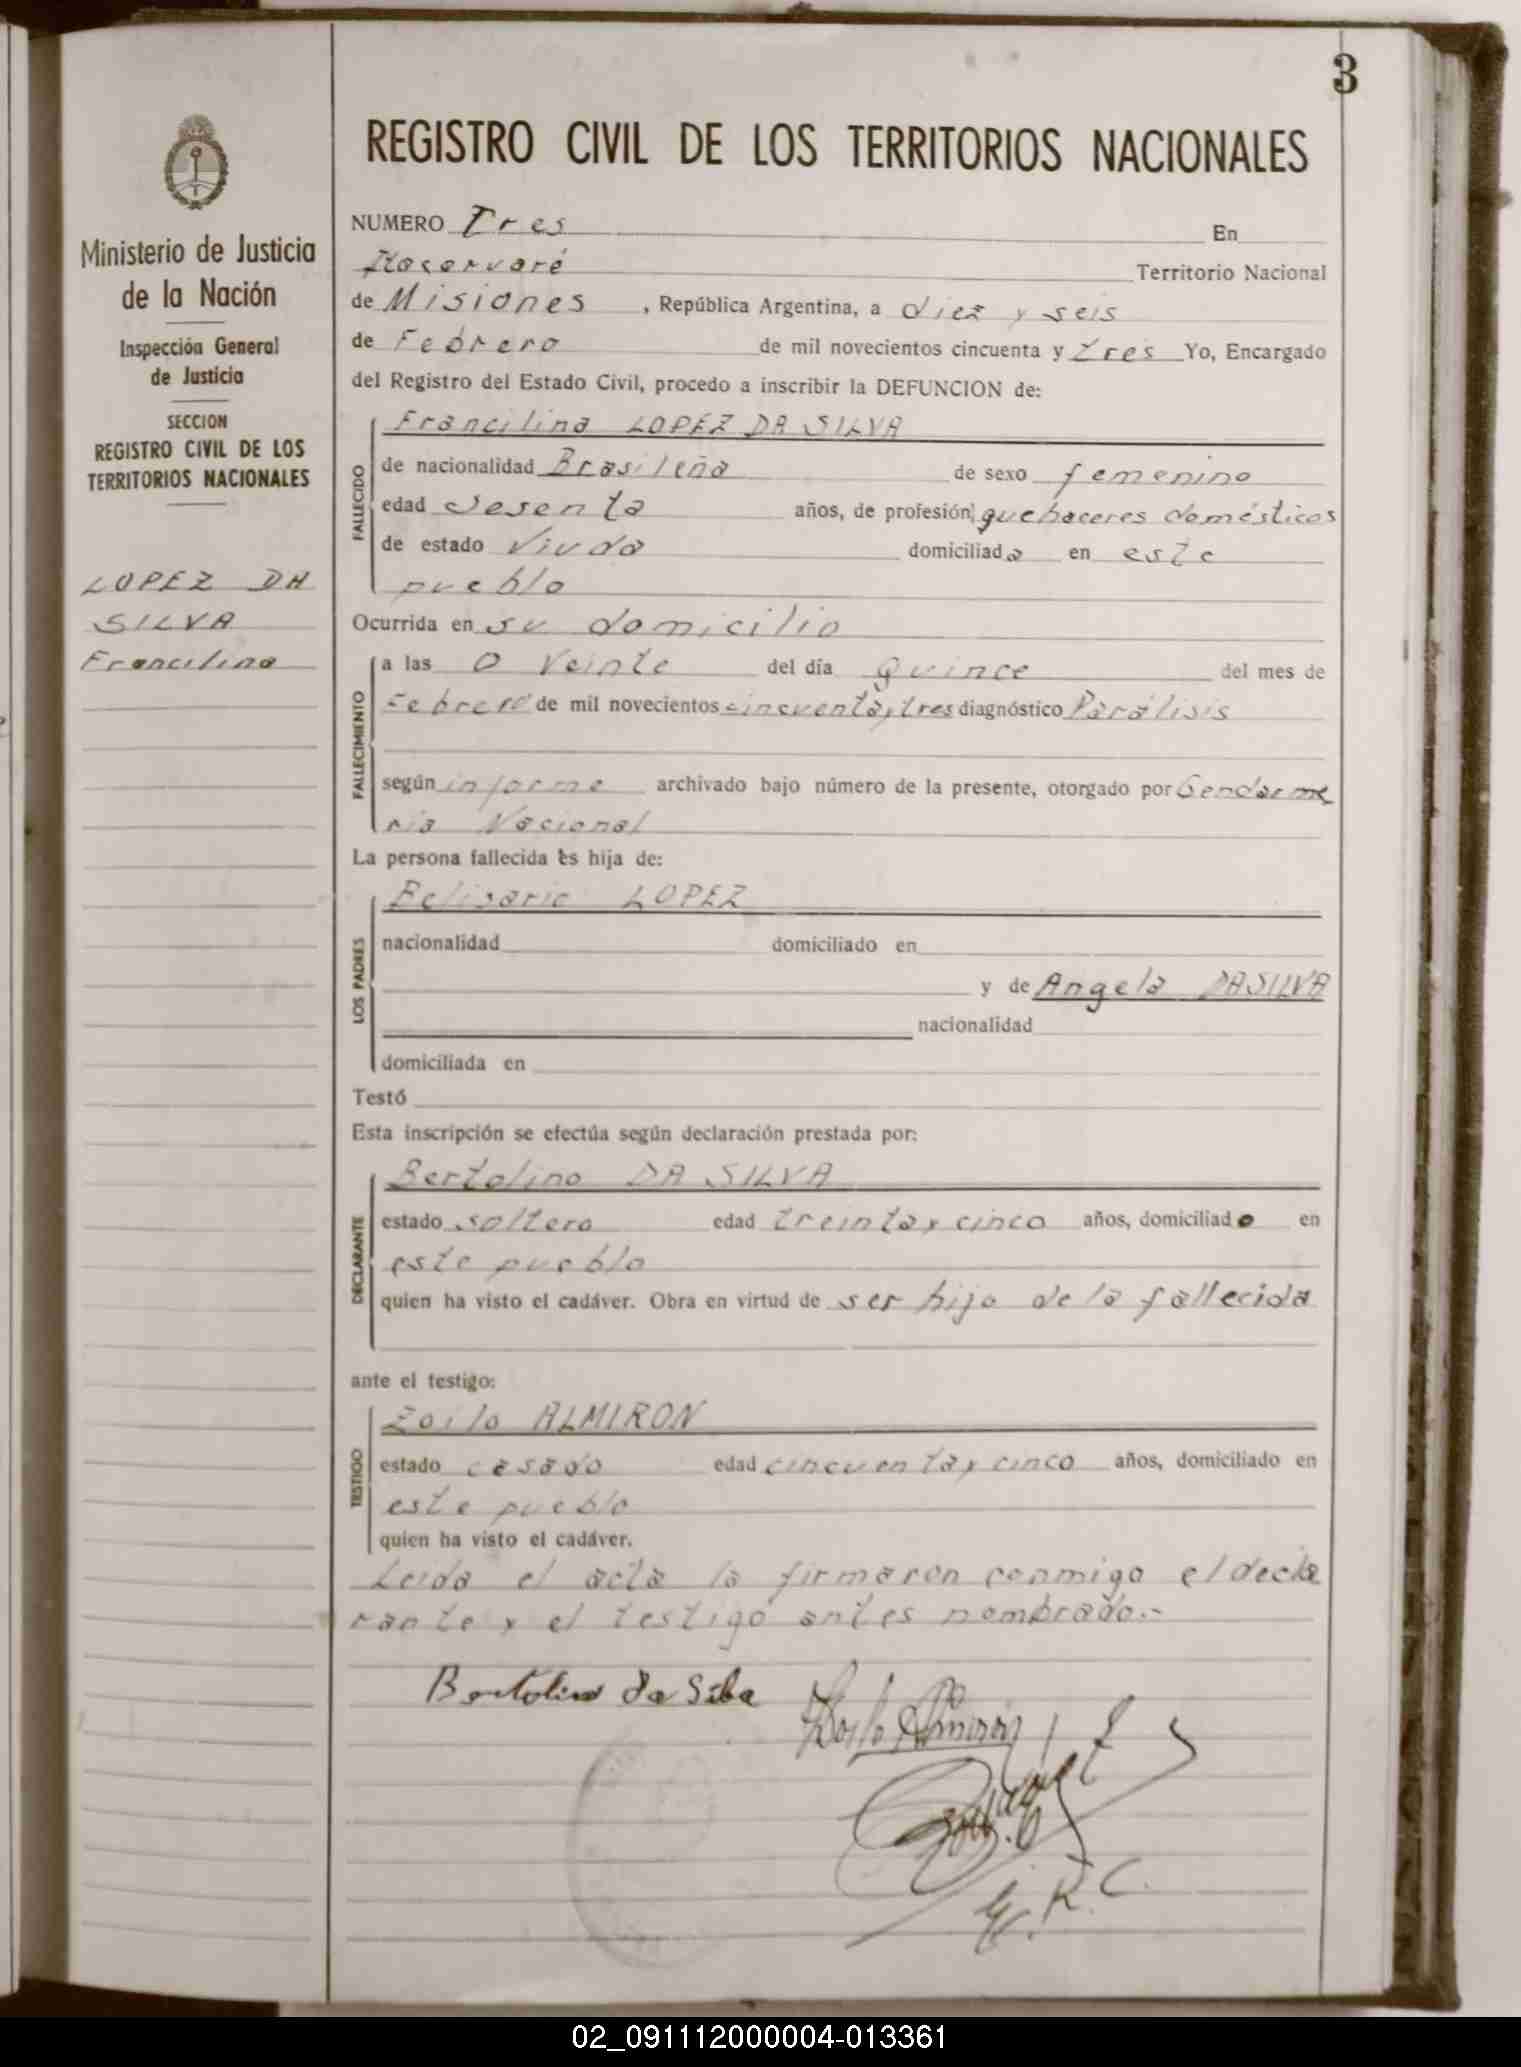 3
REGISTRO CIVIL DE LOS TERRITORIOS NACIONALES
Ministerio de Justicia
de la Nación
Inspección General
de Justicia
SECCION
REGISTRO CIVIL DE LOS
TERRITORIOS NACIONALES
LOPEZ DA
SILVA
Francilina
NUMERO Tres En
Territorio Nacional
de Misiones , República Argentina, a diez y seis
de Febrero de mil novecientos cincuenta y tres Yo, Encargado
del Registro del Estado Civil, procedo a inscribir la DEFUNCION de:
FALLECIDO
Francilina LOPEZ DA SILVA
de nacionalidad Brasileña de sexo femenino
edad Sesenta años, de profesión quehaceres domésticos
de estado Viuda domiciliada en este
pueblo
Ocurrida en su domicilio
FALLECIMIENTO
a las 0 Veinte del día Quince del mes de
Febrero de mil novecientos cincuenta y tres diagnóstico Parálisis
según informe archivado bajo número de la presente, otorgado por Gendarme
ria Nacional
La persona fallecida es hija de:
LOS PADRES
Belisario LOPEZ
nacionalidad domiciliado en
y de Angela DASILVA
nacionalidad
domiciliada en
Testó
Esta inscripción se efectúa según declaración prestada por:
DECLARANTE
Bertolino DA SILVA
estado soltero edad treinta y cinco años, domiciliado en
este pueblo
quien ha visto el cadáver. Obra en virtud de ser hijo de la fallecida
ante el testigo:
TESTIGO
Zoilo ALMIRON
estado casado edad cincuenta y cinco años, domiciliado en
este pueblo
quien ha visto el cadáver.
Leida el acta la firmaron conmigo el decla
rante y el testigo antes nombrado.-
Bertolino da Silba
Zoilo Almiron
E. R. C.
02_091112000004-013361